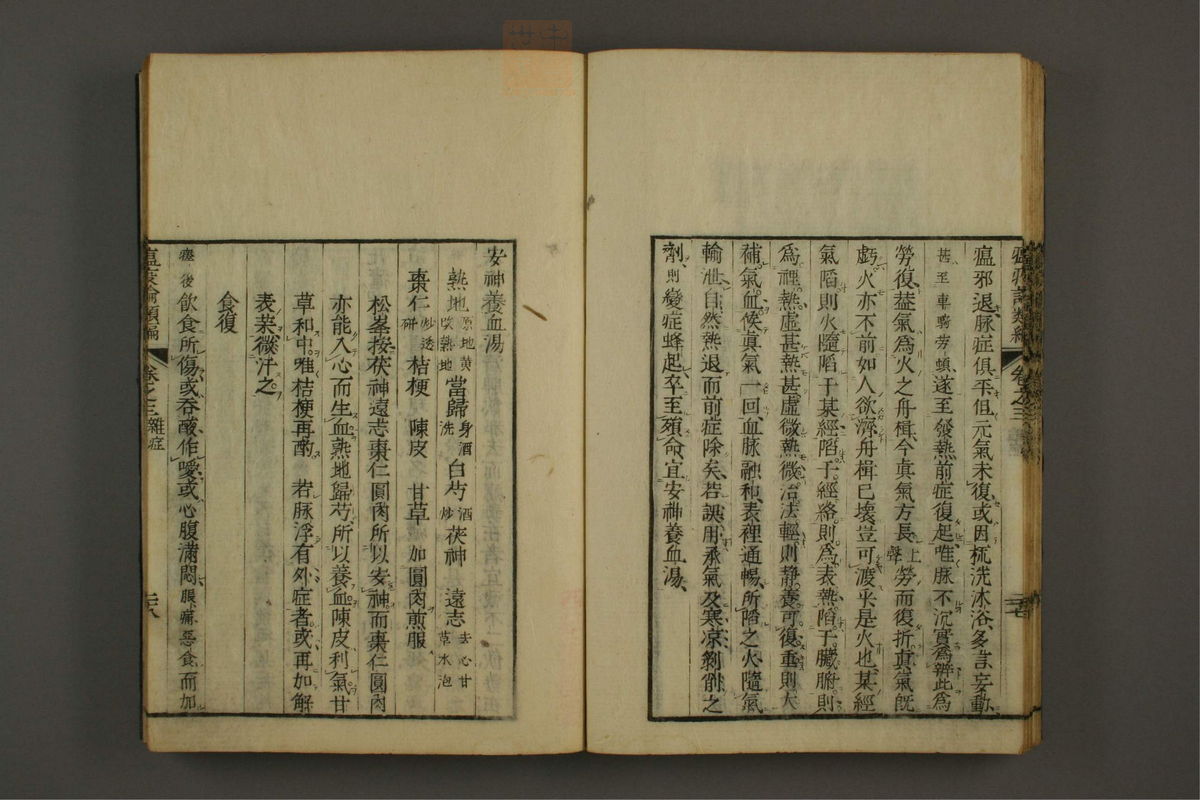 瘟邪退脉症俱平但元氣未復或因梳洗沐浴多言妄動
甚至車騎勞頓遂至發熱前症復起唯脉不沉實爲辨此爲
勞復葢氣爲火之舟楫今真氣方長上聲勞而復折真氣旣
虧火亦不前如人欲濟舟楫已壞豈可渡乎是火也某經
氣陷則火隨陷于某經陷于經絡則爲表熱陷于臟腑則
爲裡熱虛甚熱甚虛微熱微治法輕則静養可復重則大
補氣血候真氣一回血脉融和表裡通暢所陷之火隨氣
輸泄自然熱退而前症除矣若誤用承氣及寒凉剝削之
劑則變症蜂起卒至殞命宜安神養血湯
安神養血湯
熟地原地黄炒熟地 當歸身酒洗 白芍酒炒 茯神 遠志去心甘草水泡
棗仁炒透研 桔梗 陳皮 甘草 加圓肉煎服
松峯按茯神遠志棗仁圓肉所以安神而棗仁圓肉
亦能入心而生血熟地歸芍所以養血陳皮利氣甘
草和中唯桔梗再酌 若脉浮有外症者或再加解
表藥微汗之
食復
瘥後飲食所傷或吞酸作噯或心腹滿悶脹痛惡食而加
卷之三雜症
二十八